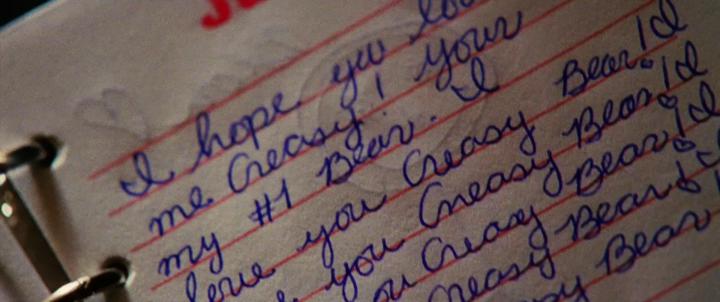 I hope you lov
me Creasy, your
my #1 Bear. I
love you Creasy Bear! I
you Creasy Bear! I
ou Creasy Bear! I
Creasy Bear!
sy Bear